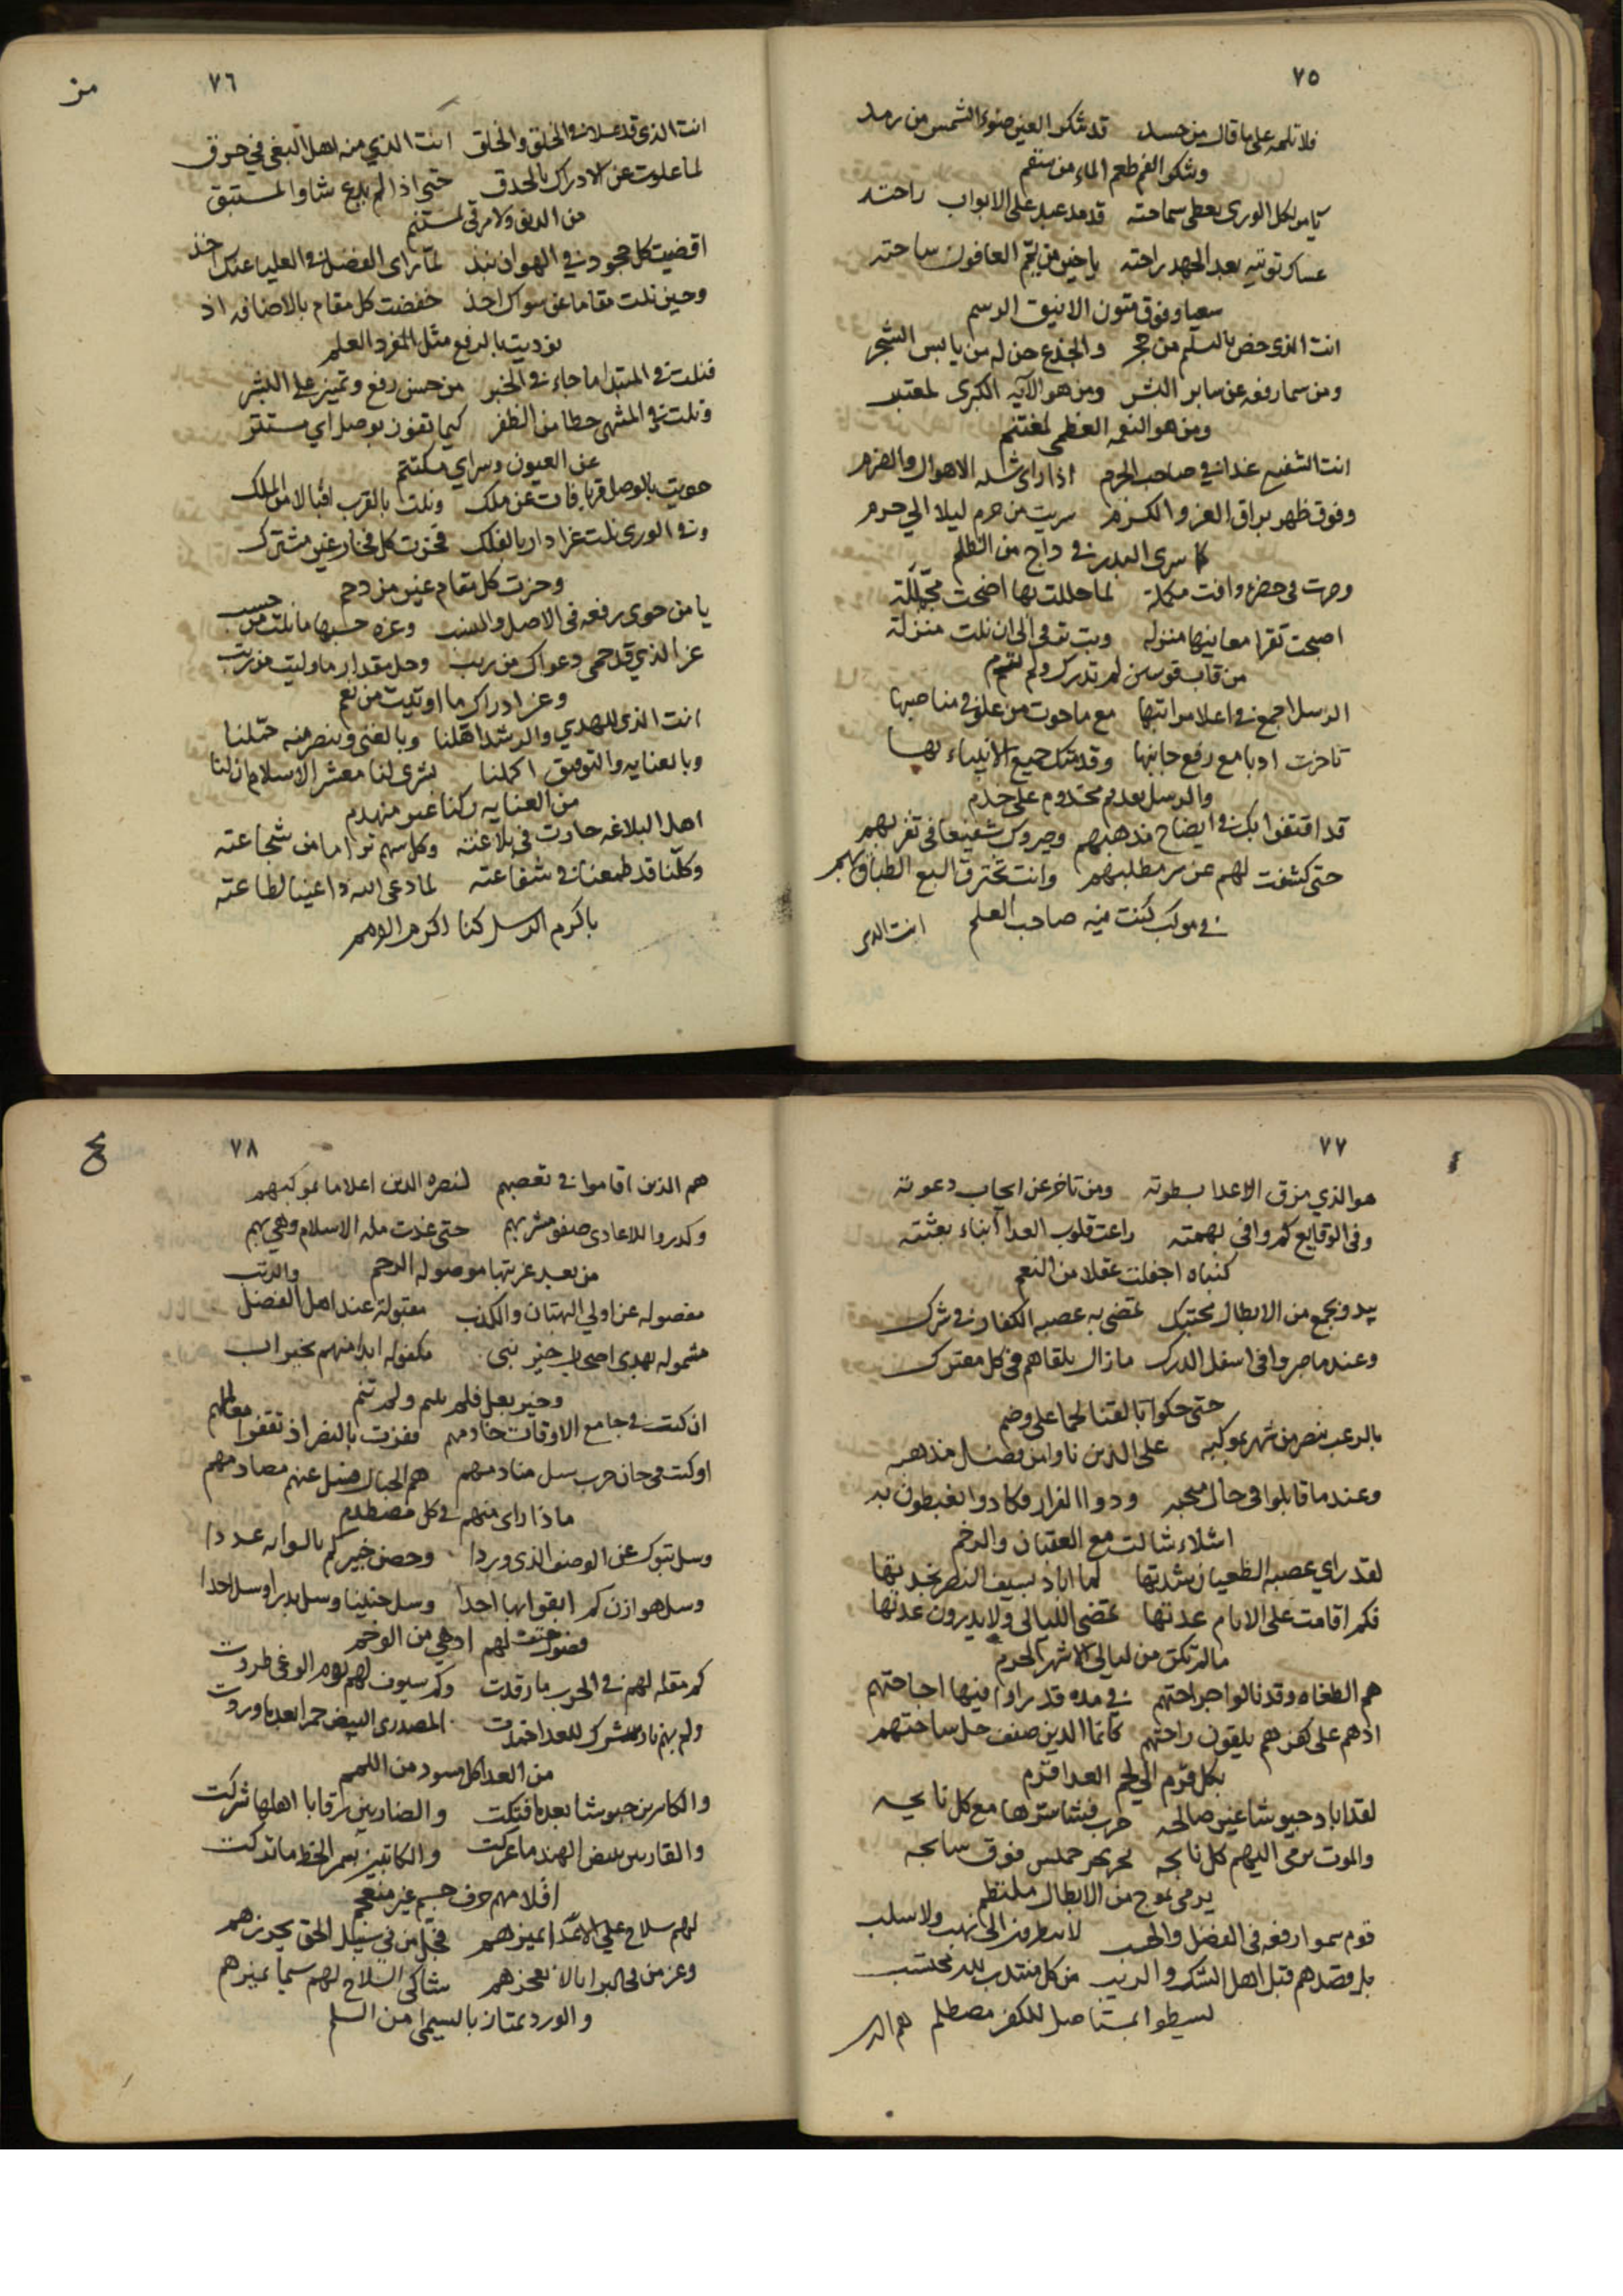 ٧٥
فلا تلمه على ما قال من حسد قد تنكر العين ضوء الشمس من رمد
وينكر الفم طعم الماء من سقم
يا من لكل الورى يعطى سماحته قد مد عبد على الابواب راحته
عساكر توتيه بعد الجهد راحته يا خير من يمم العافون ساحته
سعيا وفوق متون الاينق الرسم
انت الذى خص بالتسليم من حجر والجذع حن له من يابس الشجر
ومن سما رفعه عن ساير البشر ومن هو الآيه الكبرى لمعتبر
ومن هو النعمه العظمى لمغتنم
انت الشفيع غدا فى صاحب الجرم اذا راى شده الاهوال والضرم
وفوق ظهر براق العز والكرم سريت من حرم ليلا الي حرم
كما سرى البدر فى داج من الظلم
وصرت فى حضرة وافت مكملة لما حللت بها اضحت مجملة
اصبحت تقرا معانيها منزله وبت ترقى الى ان نلت منزلة
من قاب قوسين لم تدرك ولم ترم
الرسل اجمع فى اعلا مراتبها مع ما حوت من علو فى مناصبها
تاخرت ادبا مع رفع جانبها وقدمتك جميع الانبياء بها
والرسل تقديم مخدوم على خدم
قد اقتفوا بك فى ايضاح مذهبهم وصيروك شفيعا فى تقربهم
حتى كشفت لهم عن سر مطلبهم وانت تخترق السبع الطباق بهم
فى موكب كنت فيه صاحب العلم
انت الدى
٧٦
انت الذى قد علا فى الخلق والخلق انت الذي من اهل البغى في حرق
لما علوت عن الادراك بالحدق حتى اذا لم تدع شاوا لمستبق
من الدنو ولا مرقى لمستنم
اقضيت كل حجود فى الهوان نبذ لما راى الفضل فى العليا عنك اخذ
وحين نلت مقاما عن سواك اخذ خفضت كل مقام بالاضافه اذ
نوديت بالرفع مثل المفرد العلم
فنلت فى المبتدا ما جاء فى الخبر من حسن رفع وتميز على البشر
ونلت فى المشهى حظا من الظفر كيما تفوز بوصل اي مستتر
عن العيون وسر اي مكتتم
حويت بالوصل قربا فات عن ملك ونلت بالقرب اقبالا من الملك
وفى الورى نلت عزا دار بالفلك فحزت كل فخار غير مشترك
وجزت كل مقام غير مزدحم
يا من حوى رفعه فى الاصل والنسب وعزه حسبها ما نلت من حسب
عز الذي قد حمى دعواك من ريب وجل مقدار ما وليت من رتب
وعز ادراك ما اوتيت من نعم
انت الذى للهدي والرشد اهلنا وبالغنى وبنصر منه خولنا
وبالعنايه والتوفيق اكملنا بشرى لنا معشر الاسلام ان لنا
من العنايه ركنا غير منهدم
اهل البلاغه حارت فى بلاغته وكل سهم
وكلنا قد طمعنا فى شفاعته لما دعى الله داعينا لطاعته
باكرم الرسل كنا اكرم الامم
٧٧
هو الذي مزق الاعدا بسطوته ومن تاخر عن ايجاب دعوته
وفى الوقايع كم وافى بهمته راعت قلوب العدا انباء بعثته
كنباه اجفلت غفلا من الغنم
يبدو بجمع من الابطال محتبك تمضى به عصبه الكفار فى شرك
وعندما صروا فى اسفل الدرك ما زال يلقاهم فى كل معترك
حتى حكوا بالقنا لحما على وضم
بالرعب ينصر من شهر بموكبه على الذين ناوا من فضل مذهبه
وعندما قابلوا فى حال ودوا الفرار فكادوا يغبطون به
اشلاء شالت مع العقبان والرخم
لقد راي عصبه الطغيان شدتها لما اباد بسيف النصر نجدتها
فكم اقامت على الايام عدتها تمضى الليالى ولا يدرون عدتها
مالم تكن من ليالى الاشهر الحرم
هم الطغاه وقد نالوا جراحتهم فى مده قد راوا فيها اجاحتهم
اذ هم على كفرهم يلقون راحتهم كانما الدين ضيف حل ساحتهم
بكل قرم الى لحم العدا قرم
لقد اباد جيوشا غير صالحه حرب فشتا شرها مع كل نايحه
والموت يرمى اليهم كل نابحه يجر بحر خميس فوق سابحه
يرمى بموج من الابطال ملتطم
قوم سموا رفعه فى الفضل والحسب لا ينظرون الى نهب ولا سلب
بل قصدهم قتل اهل الشك والريب من كل منتدب لله محتسب
يسطو بمستاصل للكفر مصطلم
هم الذين
٧٨
هم الذين اقاموا فى تعصبهم لنصره الدين اعلاما بموكبهم
وكدروا للاعادى صفو مشربهم حتى غدت مله الاسلام وهي بهم
من بعد غربتها موصوله الرحم
مفصوله عن اولي البهتان والكذب مقبولة عند اهل الفضل والرتب
مشموله بهدى اصحاب خير نبى مكفوله ابدا منهم بخير اب
وخير بعل فلم تيتم ولم تئم
ان كنت فى جامع الاوقات خادمهم وفزت بالنصر اذ تقفوا معالمهم
او كنت فى حان حرب سل منادمهم هم الجبال فسل عنهم مصادمهم
ماذا راى منهم فى كل مصطدم
وسل تبوك عن الوصف الذى وردا وحصن خيبر كم عددا
وسل هوازن كم ابقوا بها احدا وسل حنينا وسل بدرا وسل احدا
فصول حتف لهم ادهى من الوخم
كم مقله لهم فى الحرب ما رقدت وكم سيوف لهم يوم الوغى طردت
المصدرى البيض حمرا بعد ما وردت
من العدا كل مسود من اللمم
والكاسرين جيوشا بعد ما فتكت والضاربين رقابا اهلها شركت
والقارين ببيض الهند ما عركت والكاتبين بسمر الخط ما تركت
اقلامهم حرف جسم غير منعجم
لهم سلاح على الاعدا يميزهم
وعز من فى البرايا لا يعجزهم شاكى السلاح لهم سيما تميزهم
والورد يمتاز بالسيمى من السلم